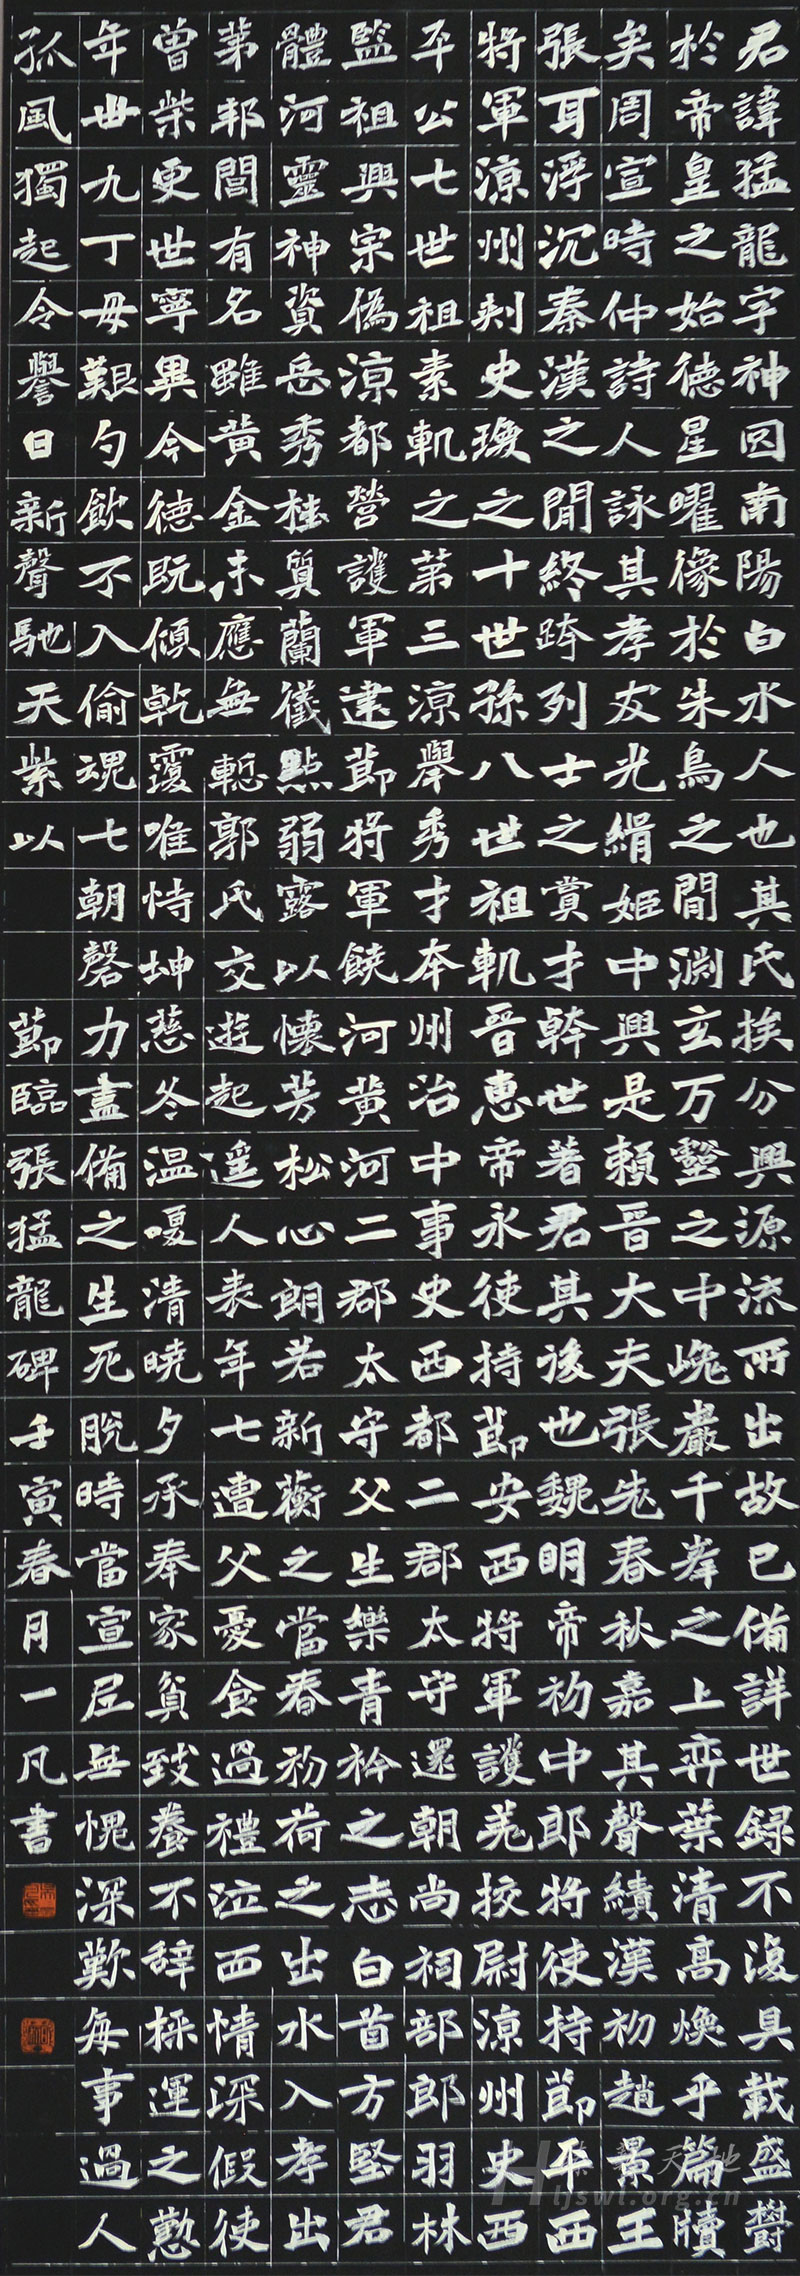 君諱猛龍字神囧南陽白水人也其氏挨分興源流所出故已備詳世録不復具載盛欝
於帝皇之始德星曜像於朱鳥之間渊玄万壑之中巉巖千峯之上弈葉清高煥乎篇牘
矣周宣時仲詩人詠其孝友光緝姬中興是賴晉大夫張老春秋嘉其聲績漢初趙景王
張耳浮沉秦漢之間終跨列士之賞才幹世著君其後也魏明帝初中郎將使持節平西
將軍涼州刾史瓊之十世孫八世祖軌晉惠帝永使持節安西將軍護羌挍尉涼州史西
平公七世祖素軌之第三涼舉秀才本州治中事史西都二郡太守還朝尚祠部郎羽林
監祖興宗偽涼都營護軍建節將軍饒河黃河二郡太守父生樂青衿之志白首方堅君
體河靈神資岳秀桂質蘭儀點弱露以懷芳松心朗若新蘅之當春初荷之出水入孝出
苐邦閭有名雖黃金未應無慙郭氏交遊起遥人表年七遭父憂食過禮泣西情深假使
曾柴更世寧異今德既傾乾覆唯恃坤慈冬温嗄清曉夕承奉家貧致養不辞採運之懃
年卋九丁母艱勺飲不入偷魂七朝磬力盡備之生死脫時當宣尼無愧深歎每事過人
孤風獨起令譽日新聲馳天紫以 節臨張猛龍碑壬寅春月一凡書
ljswl.org.cn